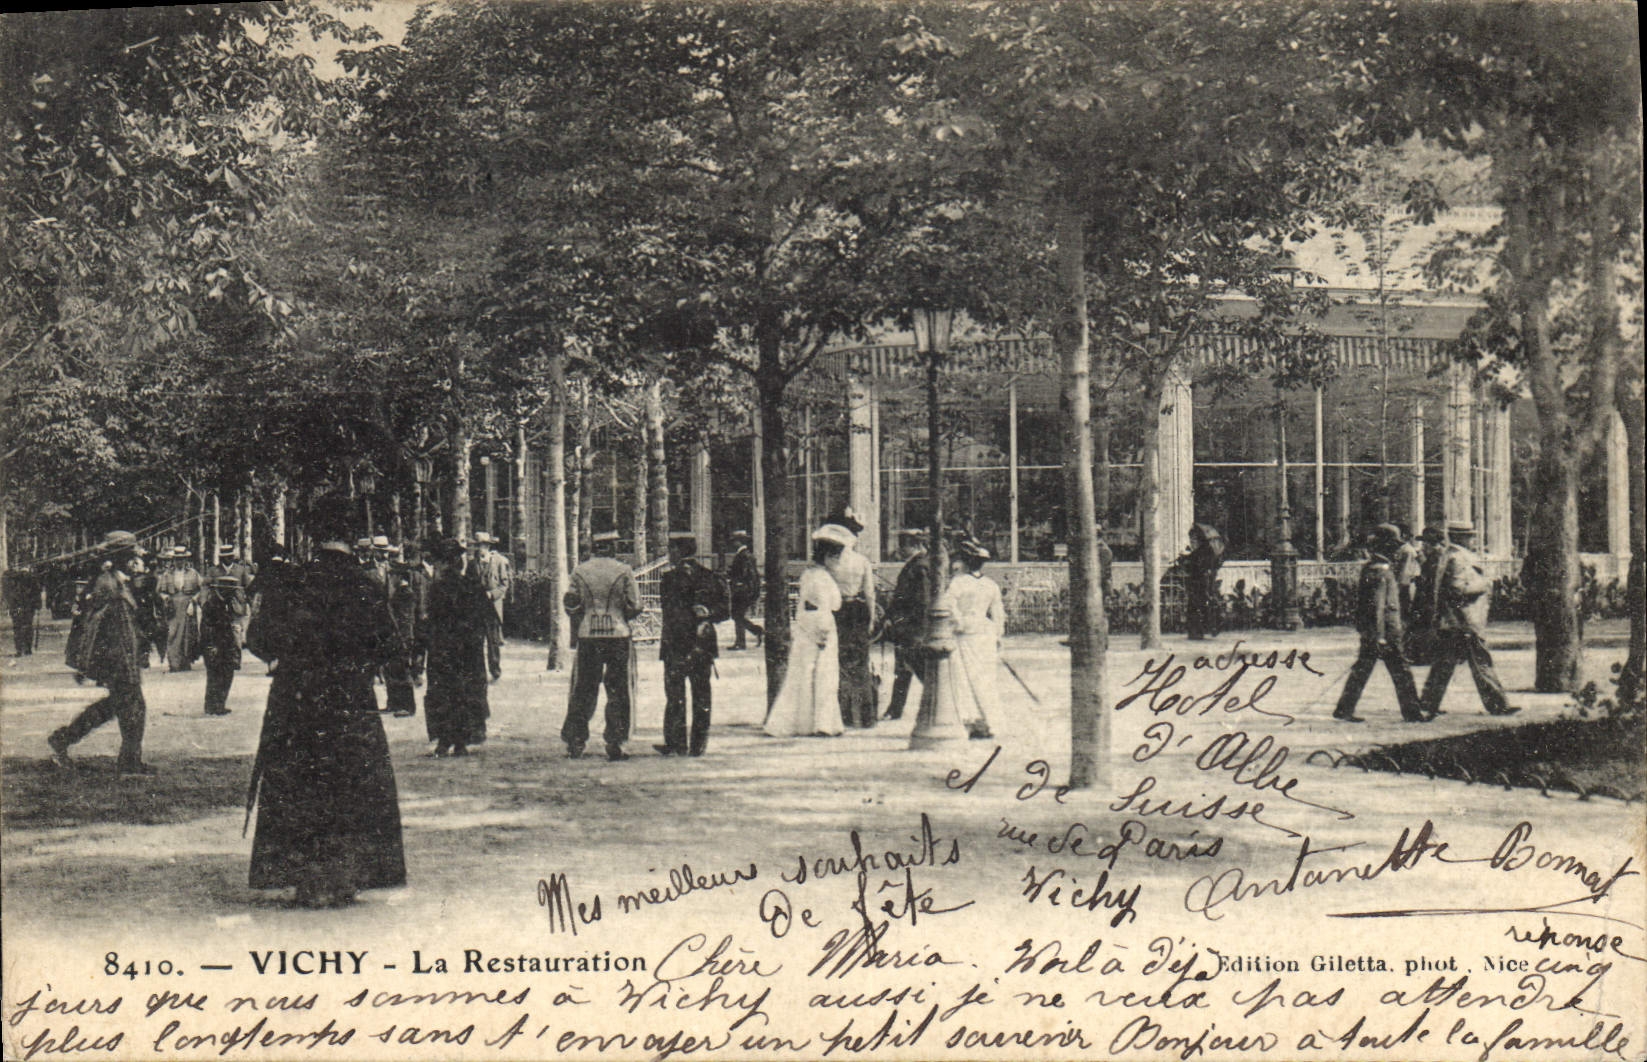 adresse
Hotel
d'Albe
et de Suisse
rue de Paris
Vichy
Mes meilleurs souhaits
de fête
Antoinette Bonnat
réponse
8410. — VICHY - La Restauration
Edition Giletta. phot. Nice
Chère Maria. Voilà déjà cinq
jours que nous sommes à Vichy aussi je ne veux pas attendre
plus longtemps sans t'envoyer un petit souvenir Bonjour à toute la famille